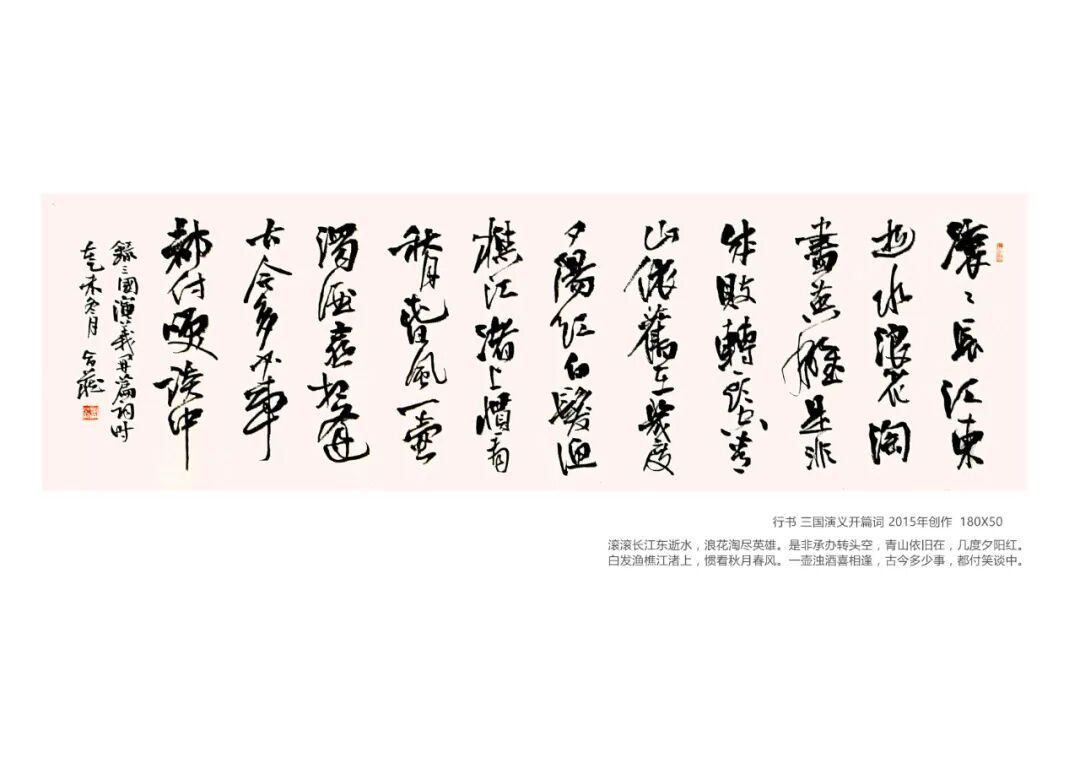 滚〻長江東
逝水浪花淘
盡英雄是非
成敗轉頭空青
山依舊在幾度
夕陽紅白髮漁
樵江渚上慣看
秋月春風一壺
濁酒喜相逢
古今多少事
都付笑談中
錄三國演義開篇词时
在乙未冬月
行书 三国演义开篇词 2015年创作 180X50
滚滚长江东逝水，浪花淘尽英雄。是非承办转头空，青山依旧在，几度夕阳红。
白发渔樵江渚上，惯看秋月春风。一壶浊酒喜相逢，古今多少事，都付笑谈中。